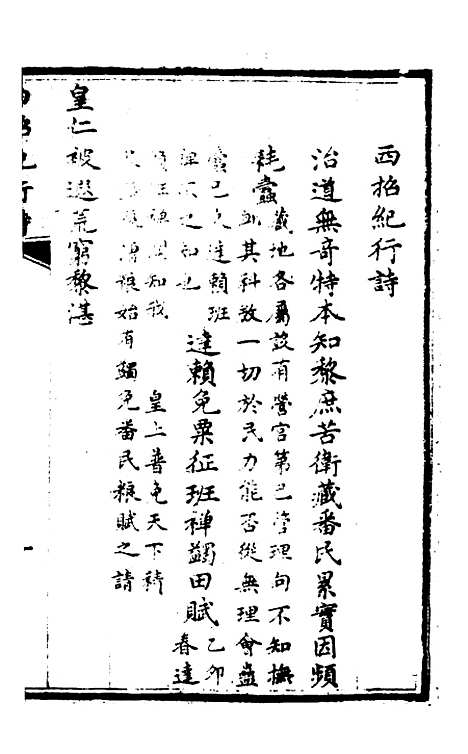 西招紀行詩
治道無奇特本知黎庶苦衛藏番民累實因頻
耗蠹藏地各屬設有營官第巴管理向不知撫
卹其科斂一切於民力能否從無理會蠹
蠹已久達賴班
禪不之知也達賴免粟征班禪蠲田賦乙卯
春達
賴班禪聞知我
皇上普免天下
糧始有蠲免番民糧賦之請
皇仁被遐荒窮黎湛
西招紀行詩
一